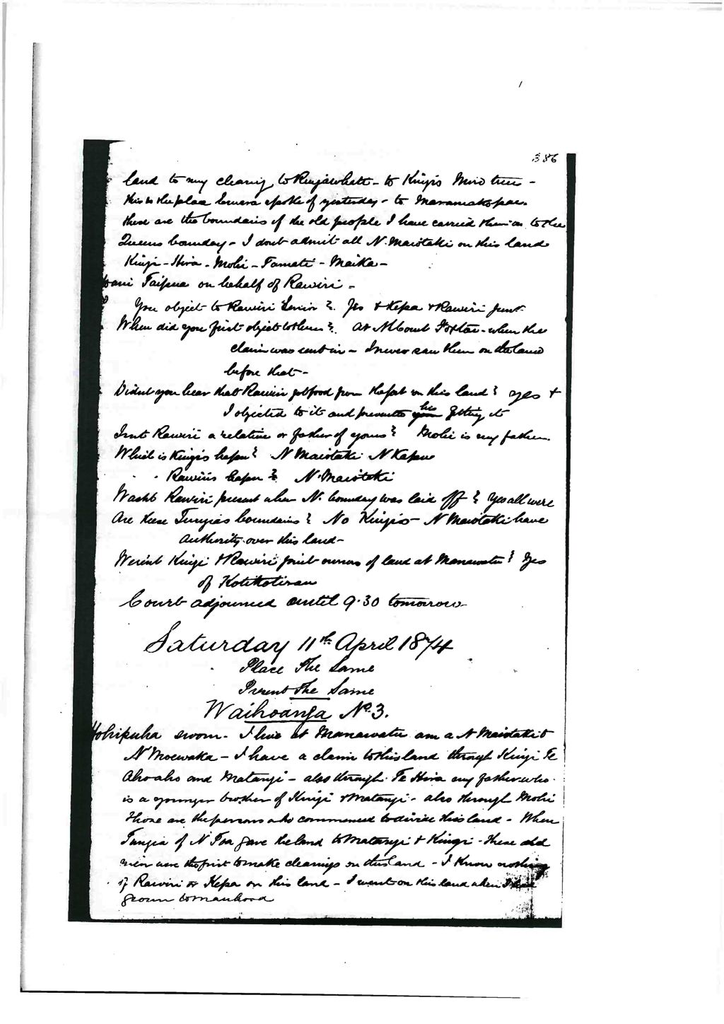 386
land to my clearing to - to Kingi's Miro tree -
this is the place spoke of yesterday - to
these are the boundaries of the old people I have carried them on to the
Queens boundary - I dont admit all N. Maiotaki on this land
Kingi - Hira - Mohi - Tamati - Maika -
Taipua on behalf of Rawiri -
You object to Rawiri Senior? Yes & Kepa & Rawiri junr.
When did you first object to them? At - when the
claim was sent in - I never saw them on the land
before that -
Didnt you hear that Rawiri got food from on this land? Yes &
I objected to it and prevented his getting it
Isnt Rawiri a relative or father of yours? Mohi is my father
Which is Kingi's hapu? N Maiotaki N
" Rawiri's hapu? N. Maiotaki
Wasnt Rawiri present when N. boundary was laid off? Yes all were
Are these Tungia's boundaries? No Kingi's - N Maiotaki have
authority over this land -
Werent Kingi & Rawiri joint owners of land at Manawatu? Yes
of
Court adjourned until 9.30 tomorrow
Saturday 11th April 1874
Place The Same
Present The Same
Waihoanga No. 3.
Hohipuha sworn - I live at Manawatu am a N Maiotaki &
N - I have a claim to this land through Kingi Te
Ahoaho and Matangi - also through Te Hira my father who
is a younger brother of Kingi & Matangi - also through Mohi
Those are the persons who commenced to divide this land - When
Tungia of N Toa gave the land to Matangi & Kingi - these old
men were the first to make clearings on this land - I know nothing
of Rawiri or Kepa on this land - I went on this land when I had
grown to manhood